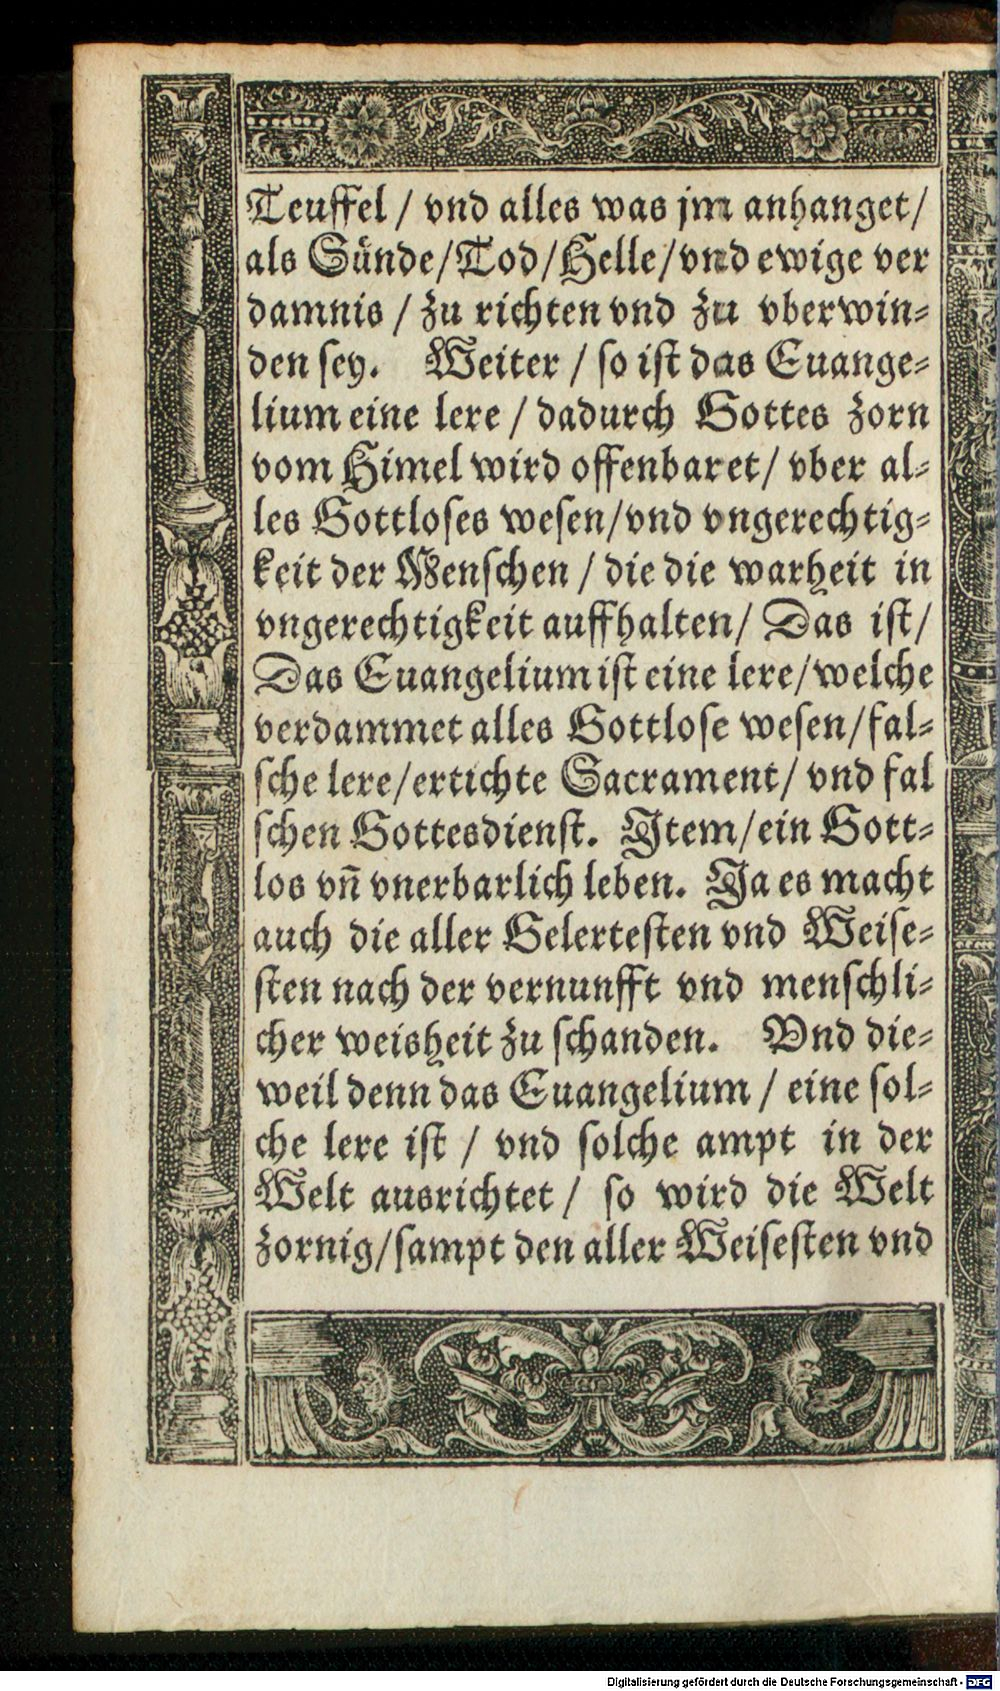 Teuffel / vnd alles was jm anhanget/
als Sünde/Tod/Helle/vnd ewige ver
damnis / zu richten vnd zu vberwin⸗
den sey. Weiter / so ist das Euange⸗
lium eine lere / dadurch Gottes zorn
vom Himel wird offenbaret/ vber al⸗
les Gottloses wesen/vnd vngerechtig⸗
keit der Menschen / die die warheit in
vngerechtigkeit auffhalten/ Das ist/
Das Euangelium ist eine lere/welche
verdammet alles Gottlose wesen/fal⸗
sche lere/ertichte Sacrament/ vnd fal
schen Gottesdienst. Item/ein Gott⸗
los vñ vnerbarlich leben. Ja es macht
auch die aller Gelertesten vnd Weise⸗
sten nach der vernunfft vnd menschli⸗
cher weisheit zu schanden. Vnd die⸗
weil denn das Euangelium / eine sol⸗
che lere ist / vnd solche ampt in der
Welt ausrichtet / so wird die Welt
zornig/sampt den aller Weisesten vnd
Digitalisierung gefördert durch die Deutsche Forschungsgemeinschaft - DFG